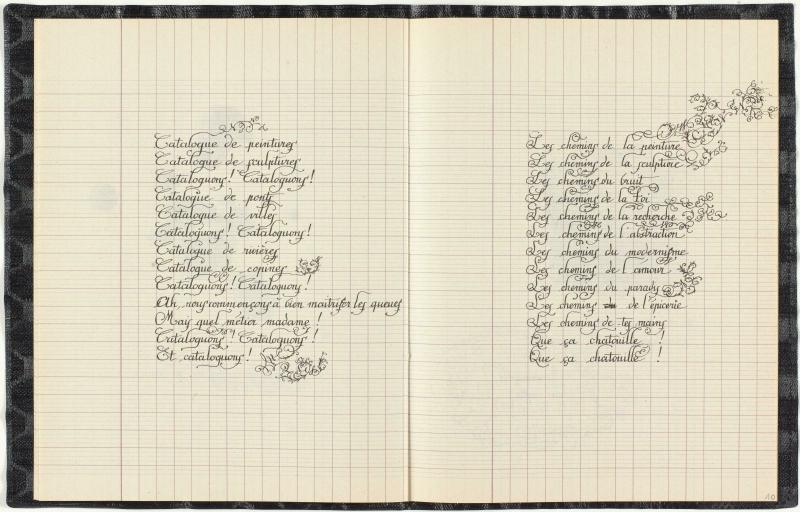 Catalogue de peintures
Catalogue de sculptures
Cataloguons ! Cataloguons !
Catalogue de pont
Catalogue de villes
Cataloguons ! Cataloguons !
Catalogue de rivières
Catalogue de copines
Cataloguons ! Cataloguons !
Ah, nous commençons à bien maitriser les queues
Mais quel métier madame !
Cataloguons ! Cataloguons !
Et cataloguons !
Les chemins de la peinture
Les chemins de la sculpture
Les chemins du bruit
Les chemins de la Foi
Les chemins de la recherche
Les chemins de l'abstraction
Les chemins du modernisme
Les chemins de l'amour
Les chemins du paradis
Les chemins de l'épicerie
Les chemins de tes mains
Que ça chatouille !
Que ça chatouille !
10